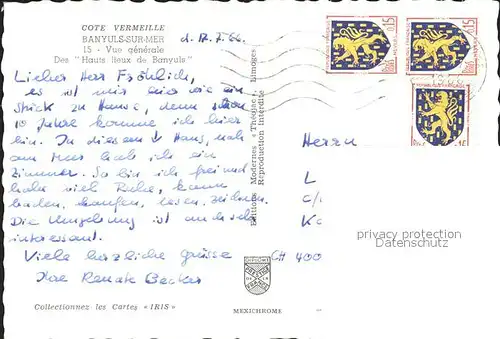 COTE VERMEILLE
BANYULS-SUR-MER
15 - Vue générale
Des "Hauts lieux de Banyuls"
d. 17. 7. 66.
Lieber Herr Fröhlich,
es ist mir hier wie ein
Stück zu Hause, denn schon
10 Jahre komme ich hier
hin. In diesem Haus, nah
am Meer hab ich ein
Zimmer. So bin ich frei und
habe viel Ruhe, kann
baden, lesen, zeichnen.
Die Umgebung ist auch sehr
interessant.
Viele herzliche Grüsse
Ihre Renate Becker
Collectionnez les Cartes «IRIS»
Editions Modernes «Théojac», Limoges
Reproduction Interdite
MEXICHROME
0,15
0,15
1966
Herrn
L
c/
K
CH 400
privacy protection
Datenschutz